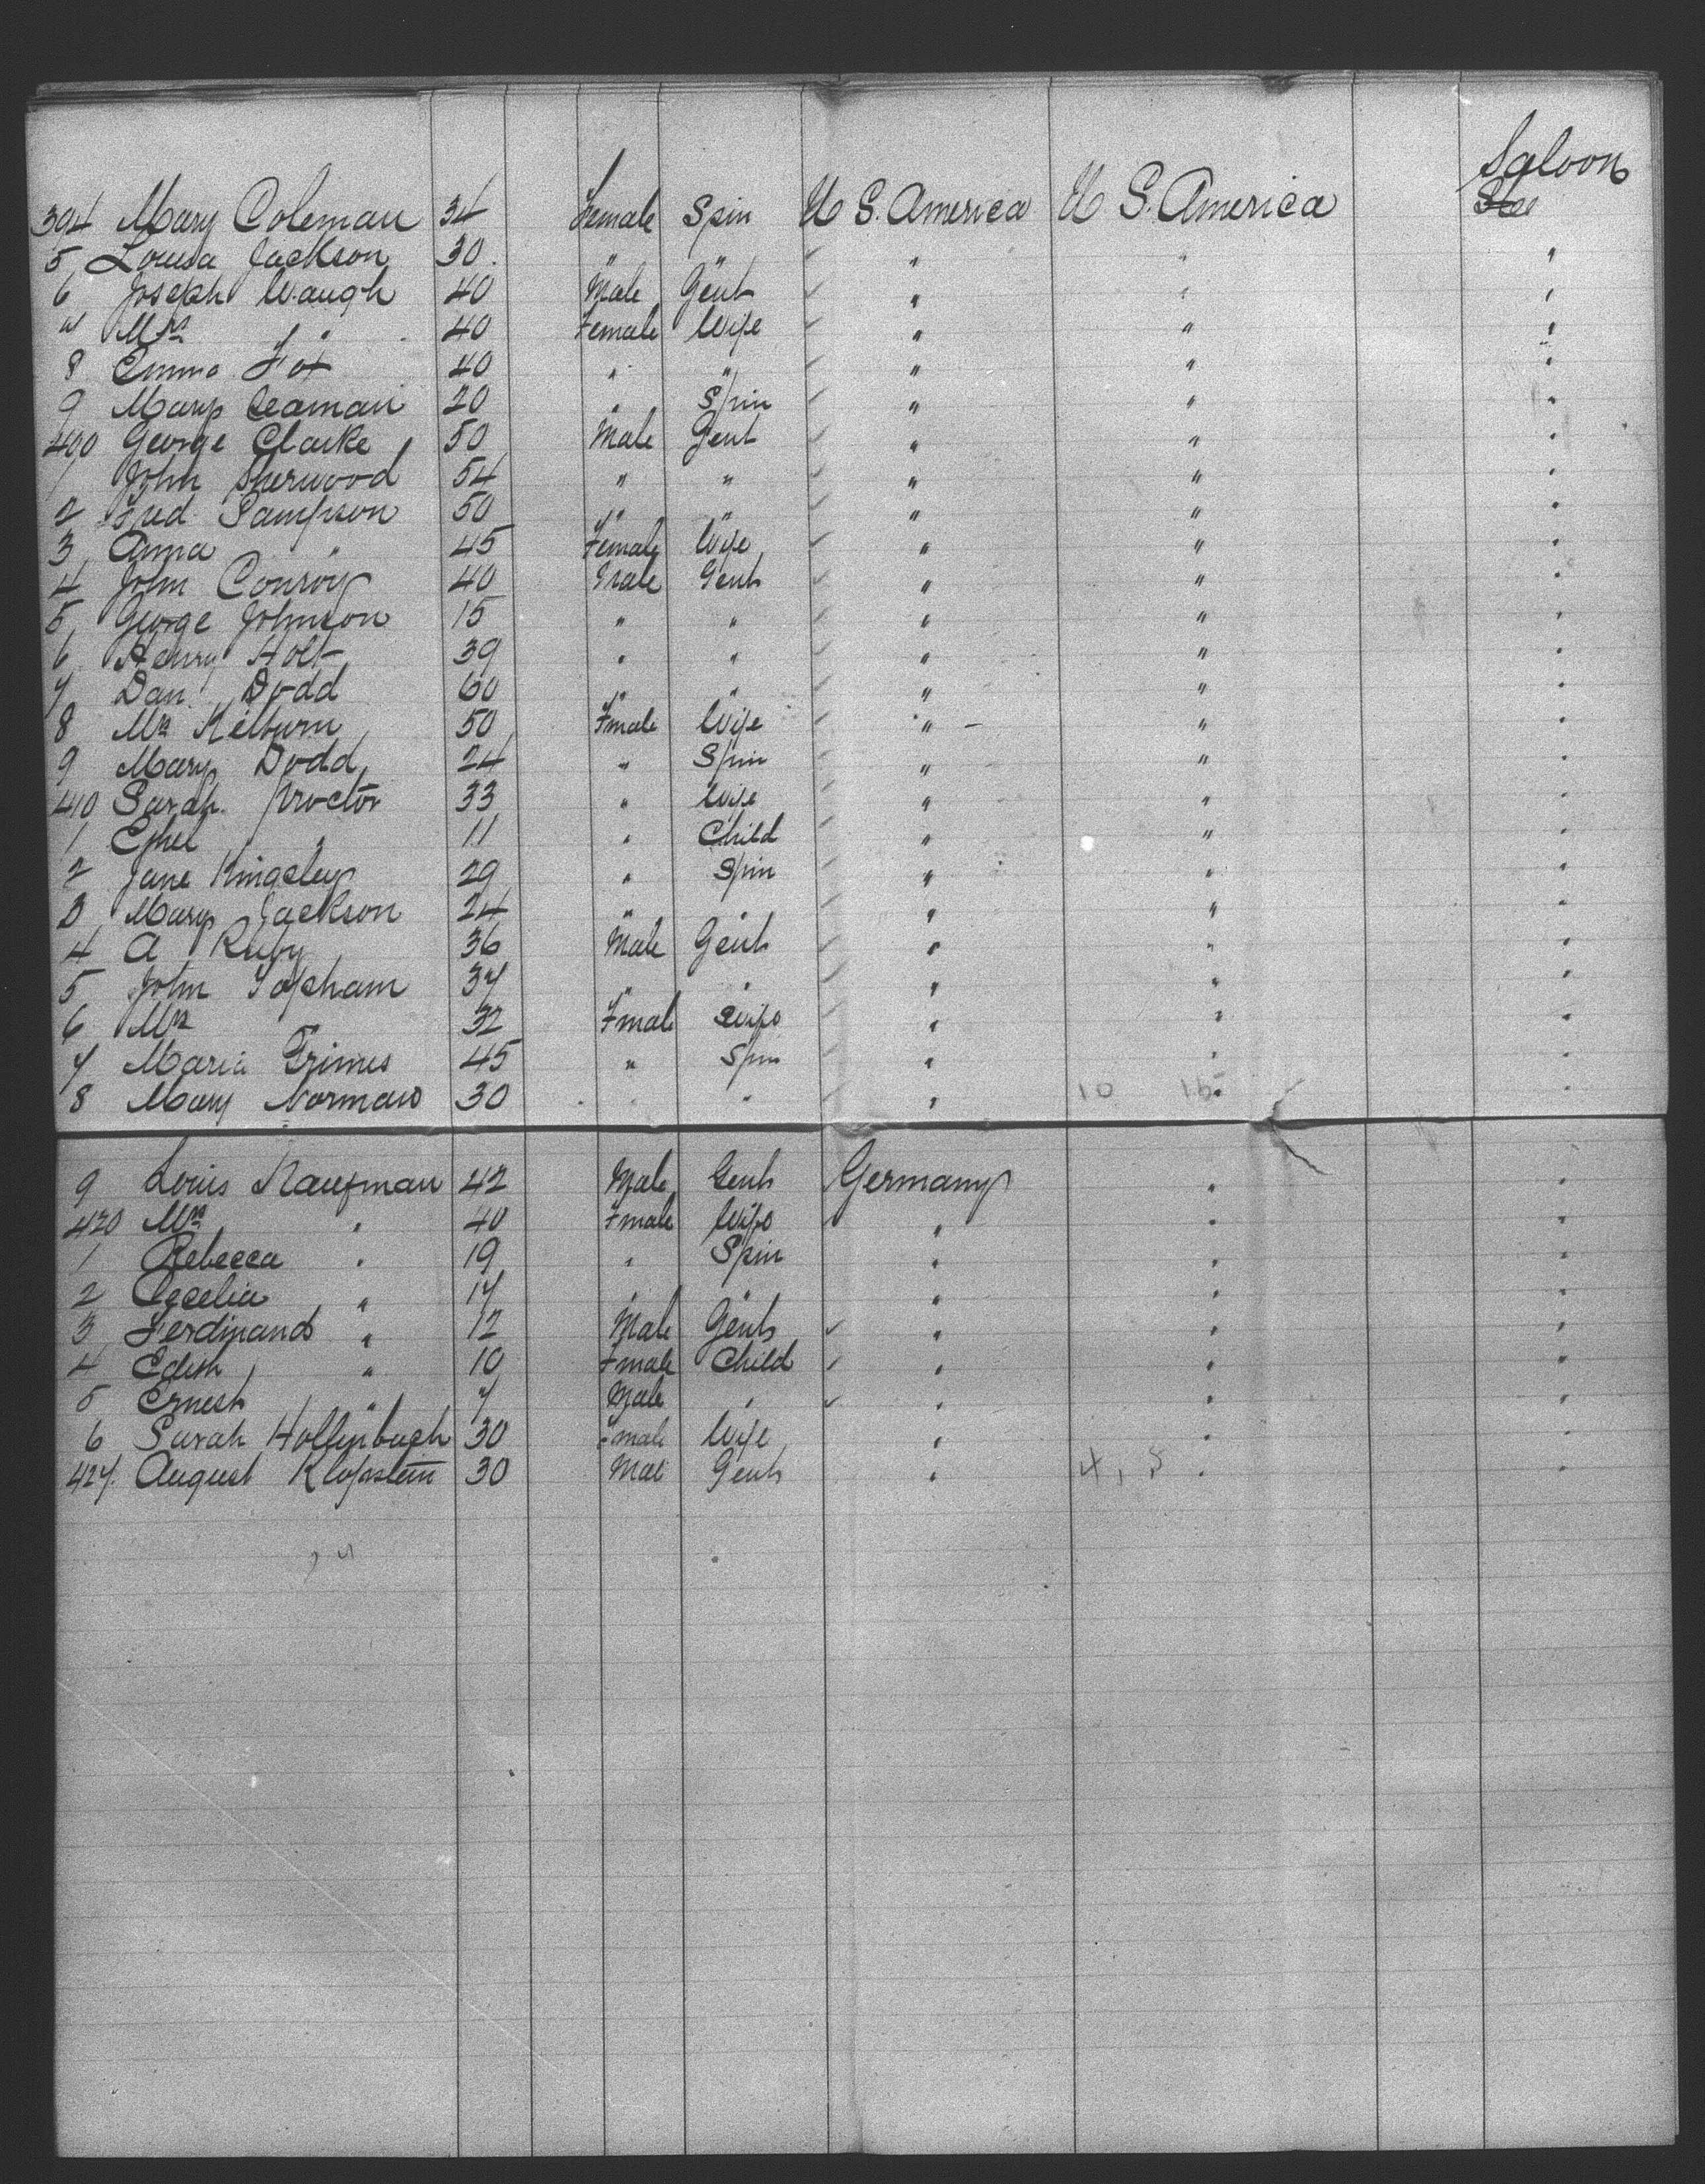 Saloon
394 Mary Coleman 34 Female Spin U S. America U S. America
5 Louisa Jackson 30. " " " " "
6 Joseph Waugh 40 Male Gent " " "
7 Mrs " 40 Female Wife " " "
8 Emma Fox 40 " " " " "
9 Mary Seaman 20 " Spin " " "
400 George Clarke 50 Male Gent " " "
1 John Sherwood 54 " " " " "
2 Fred Sampson 50 " " " " "
3 Anna " 45 Female Wife " " "
4 John Conroy 40 Male Gent " " "
5 George Johnson 15 " " " " "
6 Henry Holt 39 " " " " "
7 Dan. Dodd 60 " " " " "
8 Mrs Kelburn 50 Fmale Wife " " "
9 Mary Dodd 24 " Spin " " "
410 Sarah Proctor 33 " Wife " " "
1 Ethel " 11 " Child " " "
2 Jane Kingsley 29 " Spin " " "
3 Mary Jackson 24 " " " " "
4 A Ruby 36 Male Gent " " "
5 John Topham 37 " " " " "
6 Mrs " 32 Fmale Wife " " "
7 Maria Grimes 45 " Spin " " "
8 Mary Norman 30 " " " 10 15 " "
9 Louis Kaufman 42 Male Gent Germany " "
420 Mrs " 40 Fmale Wife " " "
1 Rebecca " 19 " Spin " " "
2 Cecelia " 17 " " " " "
3 Ferdinand " 12 Male Gent " " "
4 Edith " 10 Fmale Child " " "
5 Ernest " 7 Male " " " "
6 Sarah Hollinbach 30 Fmale Wife " " "
427. August Klopstein 30 Mal Gent " 4, 5 " "